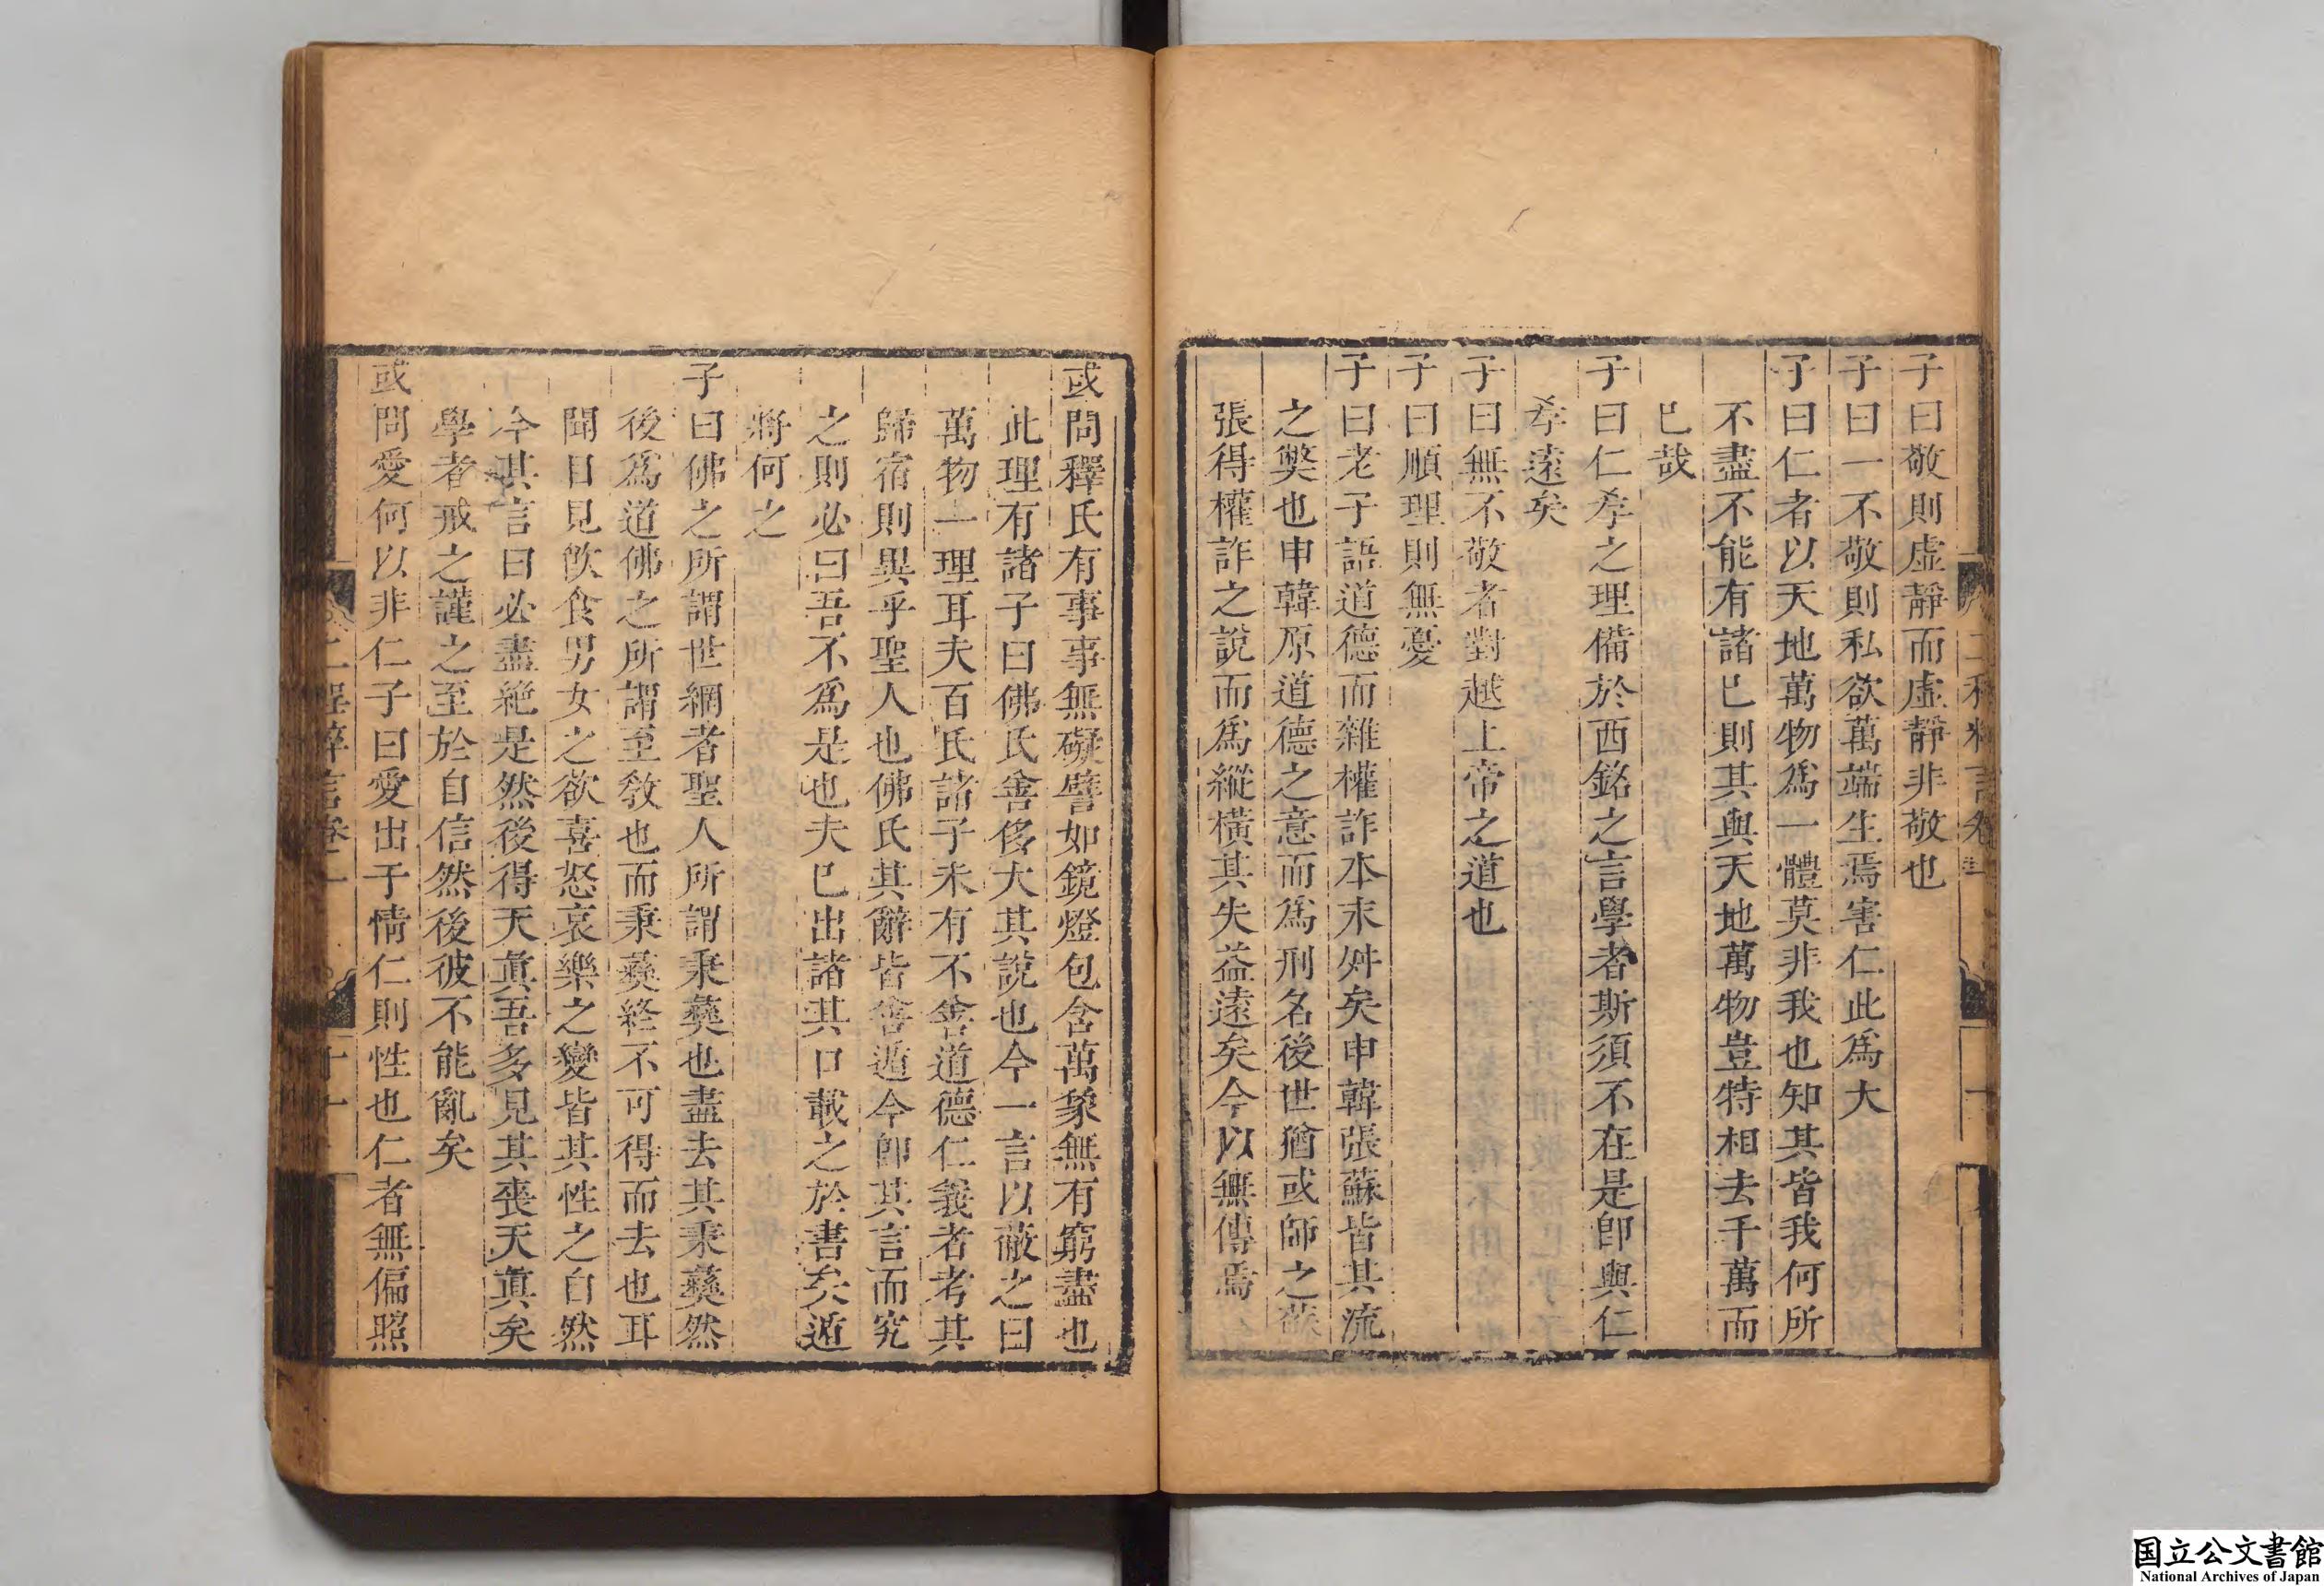 子曰敬則虛靜而虛靜非敬也
子曰一不敬則私欲萬端生焉害仁此爲大
子曰仁者以天地萬物爲一體莫非我也知其皆我何所
不盡不能有諸已則其與天地萬物豈特相去千萬而
已哉
子曰仁孝之理備於西銘之言學者斯須不在是卽與仁
孝遠矣
子曰無不敬者對越上帝之道也
子曰順理則無憂
子曰老子語道德而雜權詐本末舛矣申韓張蘇皆其流
之獘也申韓原道德之意而爲刑名後世猶或師之蘇
張得權詐之說而爲縱橫其失益遠矣今以無傳焉
或問釋氏有事事無礙譬如鏡燈包含萬象無有窮盡也
此理有諸子曰佛氏善侈大其說也今一言以蔽之曰
萬物一理耳夫百氏諸子未有不善道德仁義者考其
歸宿則異乎聖人也佛氏其辭皆善遁今卽其言而究
之則必曰吾不爲是也夫已出諸其口載之於書矣遁
將何之
子曰佛之所謂世網者聖人所謂秉彝也盡去其秉彝然
後爲道佛之所謂至敎也而秉彝終不可得而去也耳
聞目見飲食男女之欲喜怒哀樂之變皆其性之自然
今其言曰必盡絶是然後得天眞吾多見其喪天眞矣
學者戒之謹之至於自信然後彼不能亂矣
或問愛何以非仁子曰愛出于情仁則性也仁者無偏照
二程粹言卷一
十一
国立公文書館
National Archives of Japan